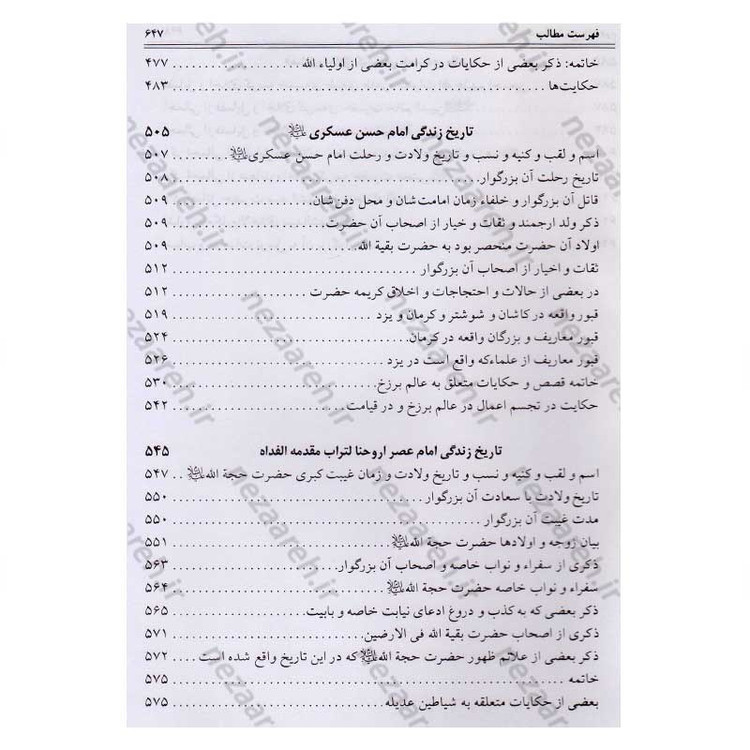 فهرست مطالب ۶۴۷
خاتمه: ذکر بعضی از حکایات در کرامت بعضی از اولیاء الله ۴۷۷
حکایت‌ها ۴۸۳
تاریخ زندگی امام حسن عسکری علیه‌السلام ۵۰۵
اسم و لقب و کنیه و نسب و تاریخ ولادت و رحلت امام حسن عسکری علیه‌السلام ۵۰۷
تاریخ رحلت آن بزرگوار ۵۰۸
قاتل آن بزرگوار و خلفاء زمان امامت‌شان و محل دفن‌شان ۵۰۹
ذکر ولد ارجمند و ثقات و خیار از اصحاب آن حضرت ۵۰۹
اولاد آن حضرت منحصر بود به حضرت بقیة الله ۵۰۹
ثقات و اخیار از اصحاب آن بزرگوار ۵۱۲
در بعضی از حالات و احتجاجات و اخلاق کریمه حضرت ۵۱۲
قبور واقعه در کاشان و شوشتر و کرمان و یزد ۵۱۹
قبور معاریف و بزرگان واقعه در کرمان ۵۲۴
قبور معاریف از علماءکه واقع است در یزد ۵۲۶
خاتمه قصص و حکایات متعلق به عالم برزخ ۵۳۰
حکایت در تجسم اعمال در عالم برزخ و در قیامت ۵۴۲
تاریخ زندگی امام عصر اروحنا لتراب مقدمه الفداه ۵۴۵
اسم و لقب و کنیه و نسب و تاریخ ولادت و زمان غیبت کبری حضرت حجة الله علیه‌السلام ۵۴۷
تاریخ ولادت با سعادت آن بزرگوار ۵۵۰
مدت غیبت آن بزرگوار ۵۵۰
بیان زوجه و اولادها حضرت حجة الله علیه‌السلام ۵۵۱
ذکری از سفراء و نواب خاصه و اصحاب آن بزرگوار ۵۶۳
سفراء و نواب خاصه حضرت حجة الله علیه‌السلام ۵۶۴
ذکر بعضی که به کذب و دروغ ادعای نیابت خاصه و بابیت ۵۶۵
ذکری از اصحاب حضرت بقیة الله فی الارضین ۵۷۱
ذکر بعضی از علائم ظهور حضرت حجة الله علیه‌السلام که در این تاریخ واقع شده است ۵۷۲
خاتمه ۵۷۵
بعضی از حکایات متعلقه به شیاطین عدیله ۵۷۵
nezaareh.ir